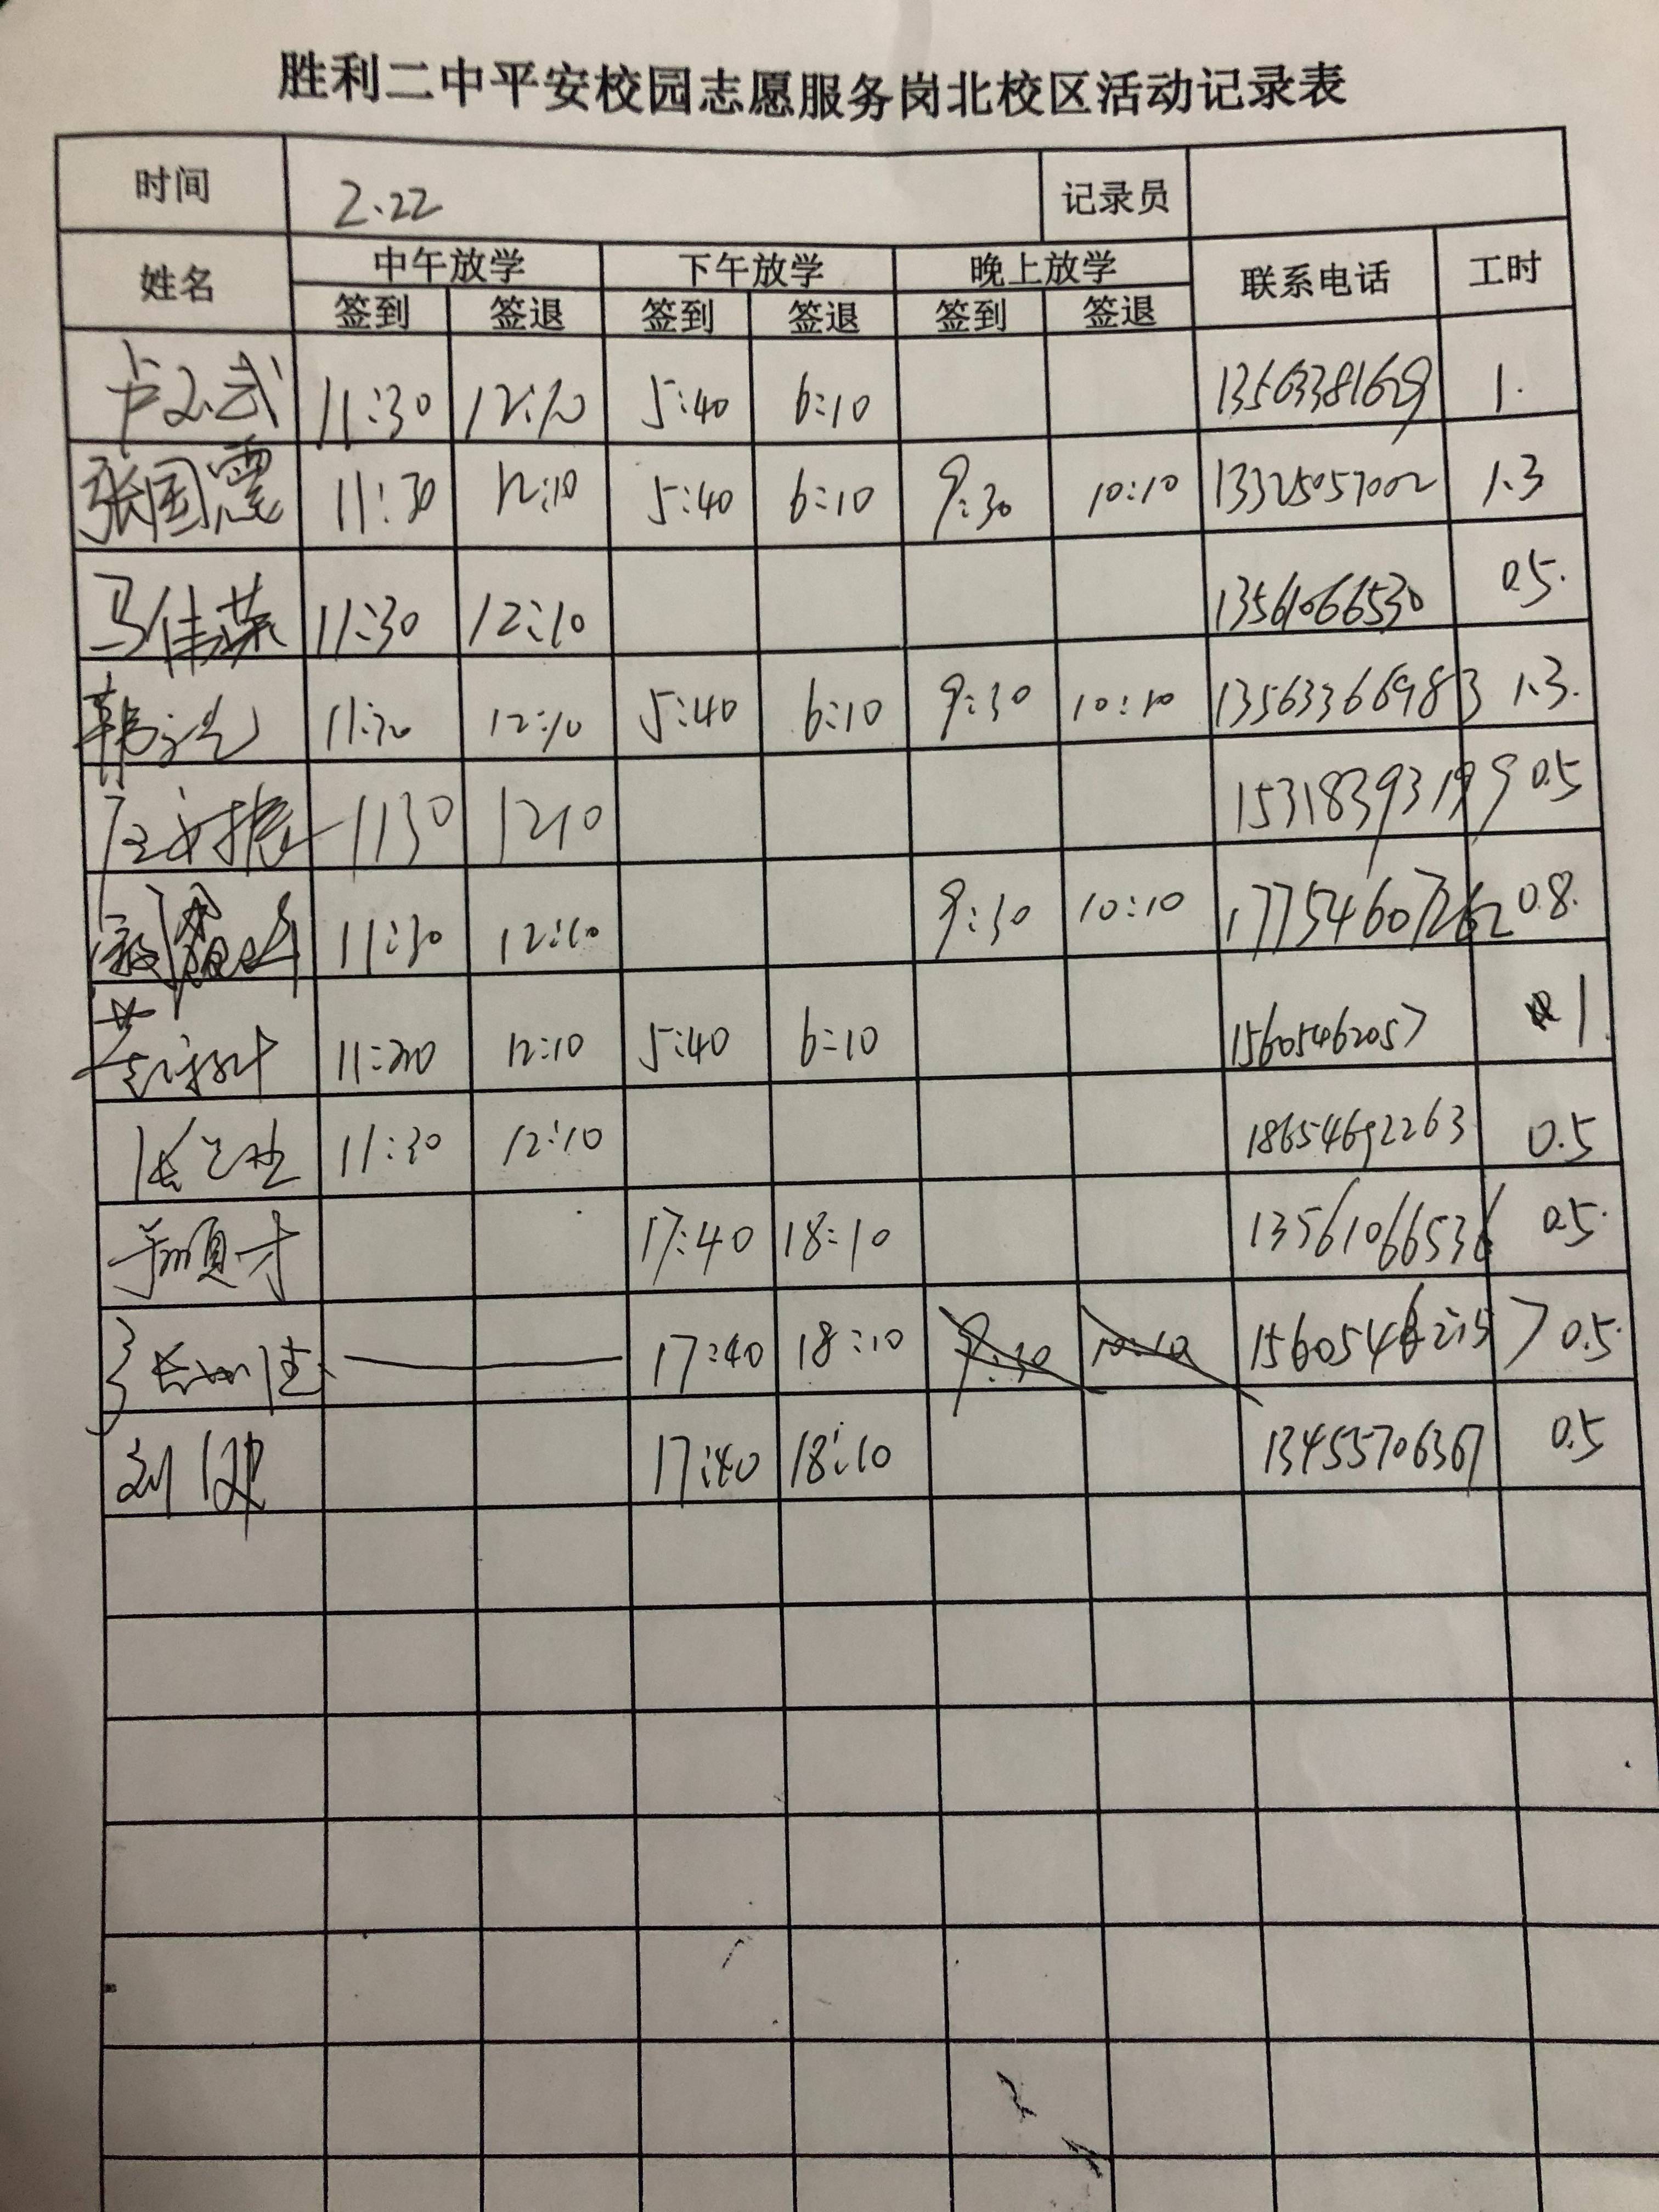 胜利二中平安校园志愿服务岗北校区活动记录表
时间 2.22 记录员
姓名 中午放学 下午放学 晚上放学 联系电话 工时
签到 签退 签到 签退 签到 签退
11:30 12:10 5:40 6:10 13563381629 1.
张国震 11:30 12:10 5:40 6:10 9:30 10:10 13325057002 1.3
马佳荣 11:30 12:10 13561066530 0.5.
11:30 12:10 5:40 6:10 9:30 10:10 13563366983 1.3.
1130 1210 15318393199 0.5
11:30 12:10 9:30 10:10 17754607262 0.8.
12:10 5:40 6:10 15605462057 1.
11:30 12:10 18654692263 0.5
17:40 18:10 13561066536 0.5.
17:40 18:10 9:30 10:10 0.5.
17:40 18:10 13455706367 0.5